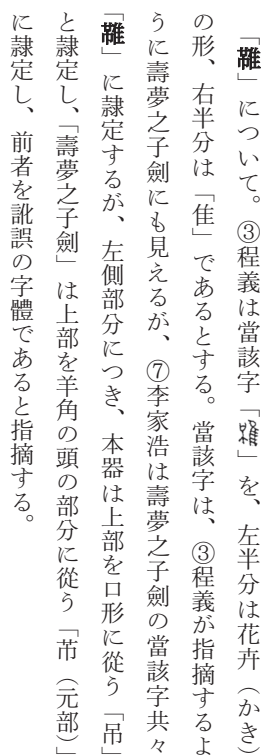 「䨼」について。③程義は當該字「」を、左半分は花卉（かき）
の形、右半分は「隹」であるとする。當該字は、③程義が指摘するよ
うに壽夢之子劍にも見えるが、⑦李家浩は壽夢之子劍の當該字共々
「」に隷定するが、左側部分につき、本器は上部を口形に從う「吊」
と隷定し、「壽夢之子劍」は上部を羊角の頭の部分に從う「芇（元部）」
に隷定し、前者を訛誤の字體であると指摘する。